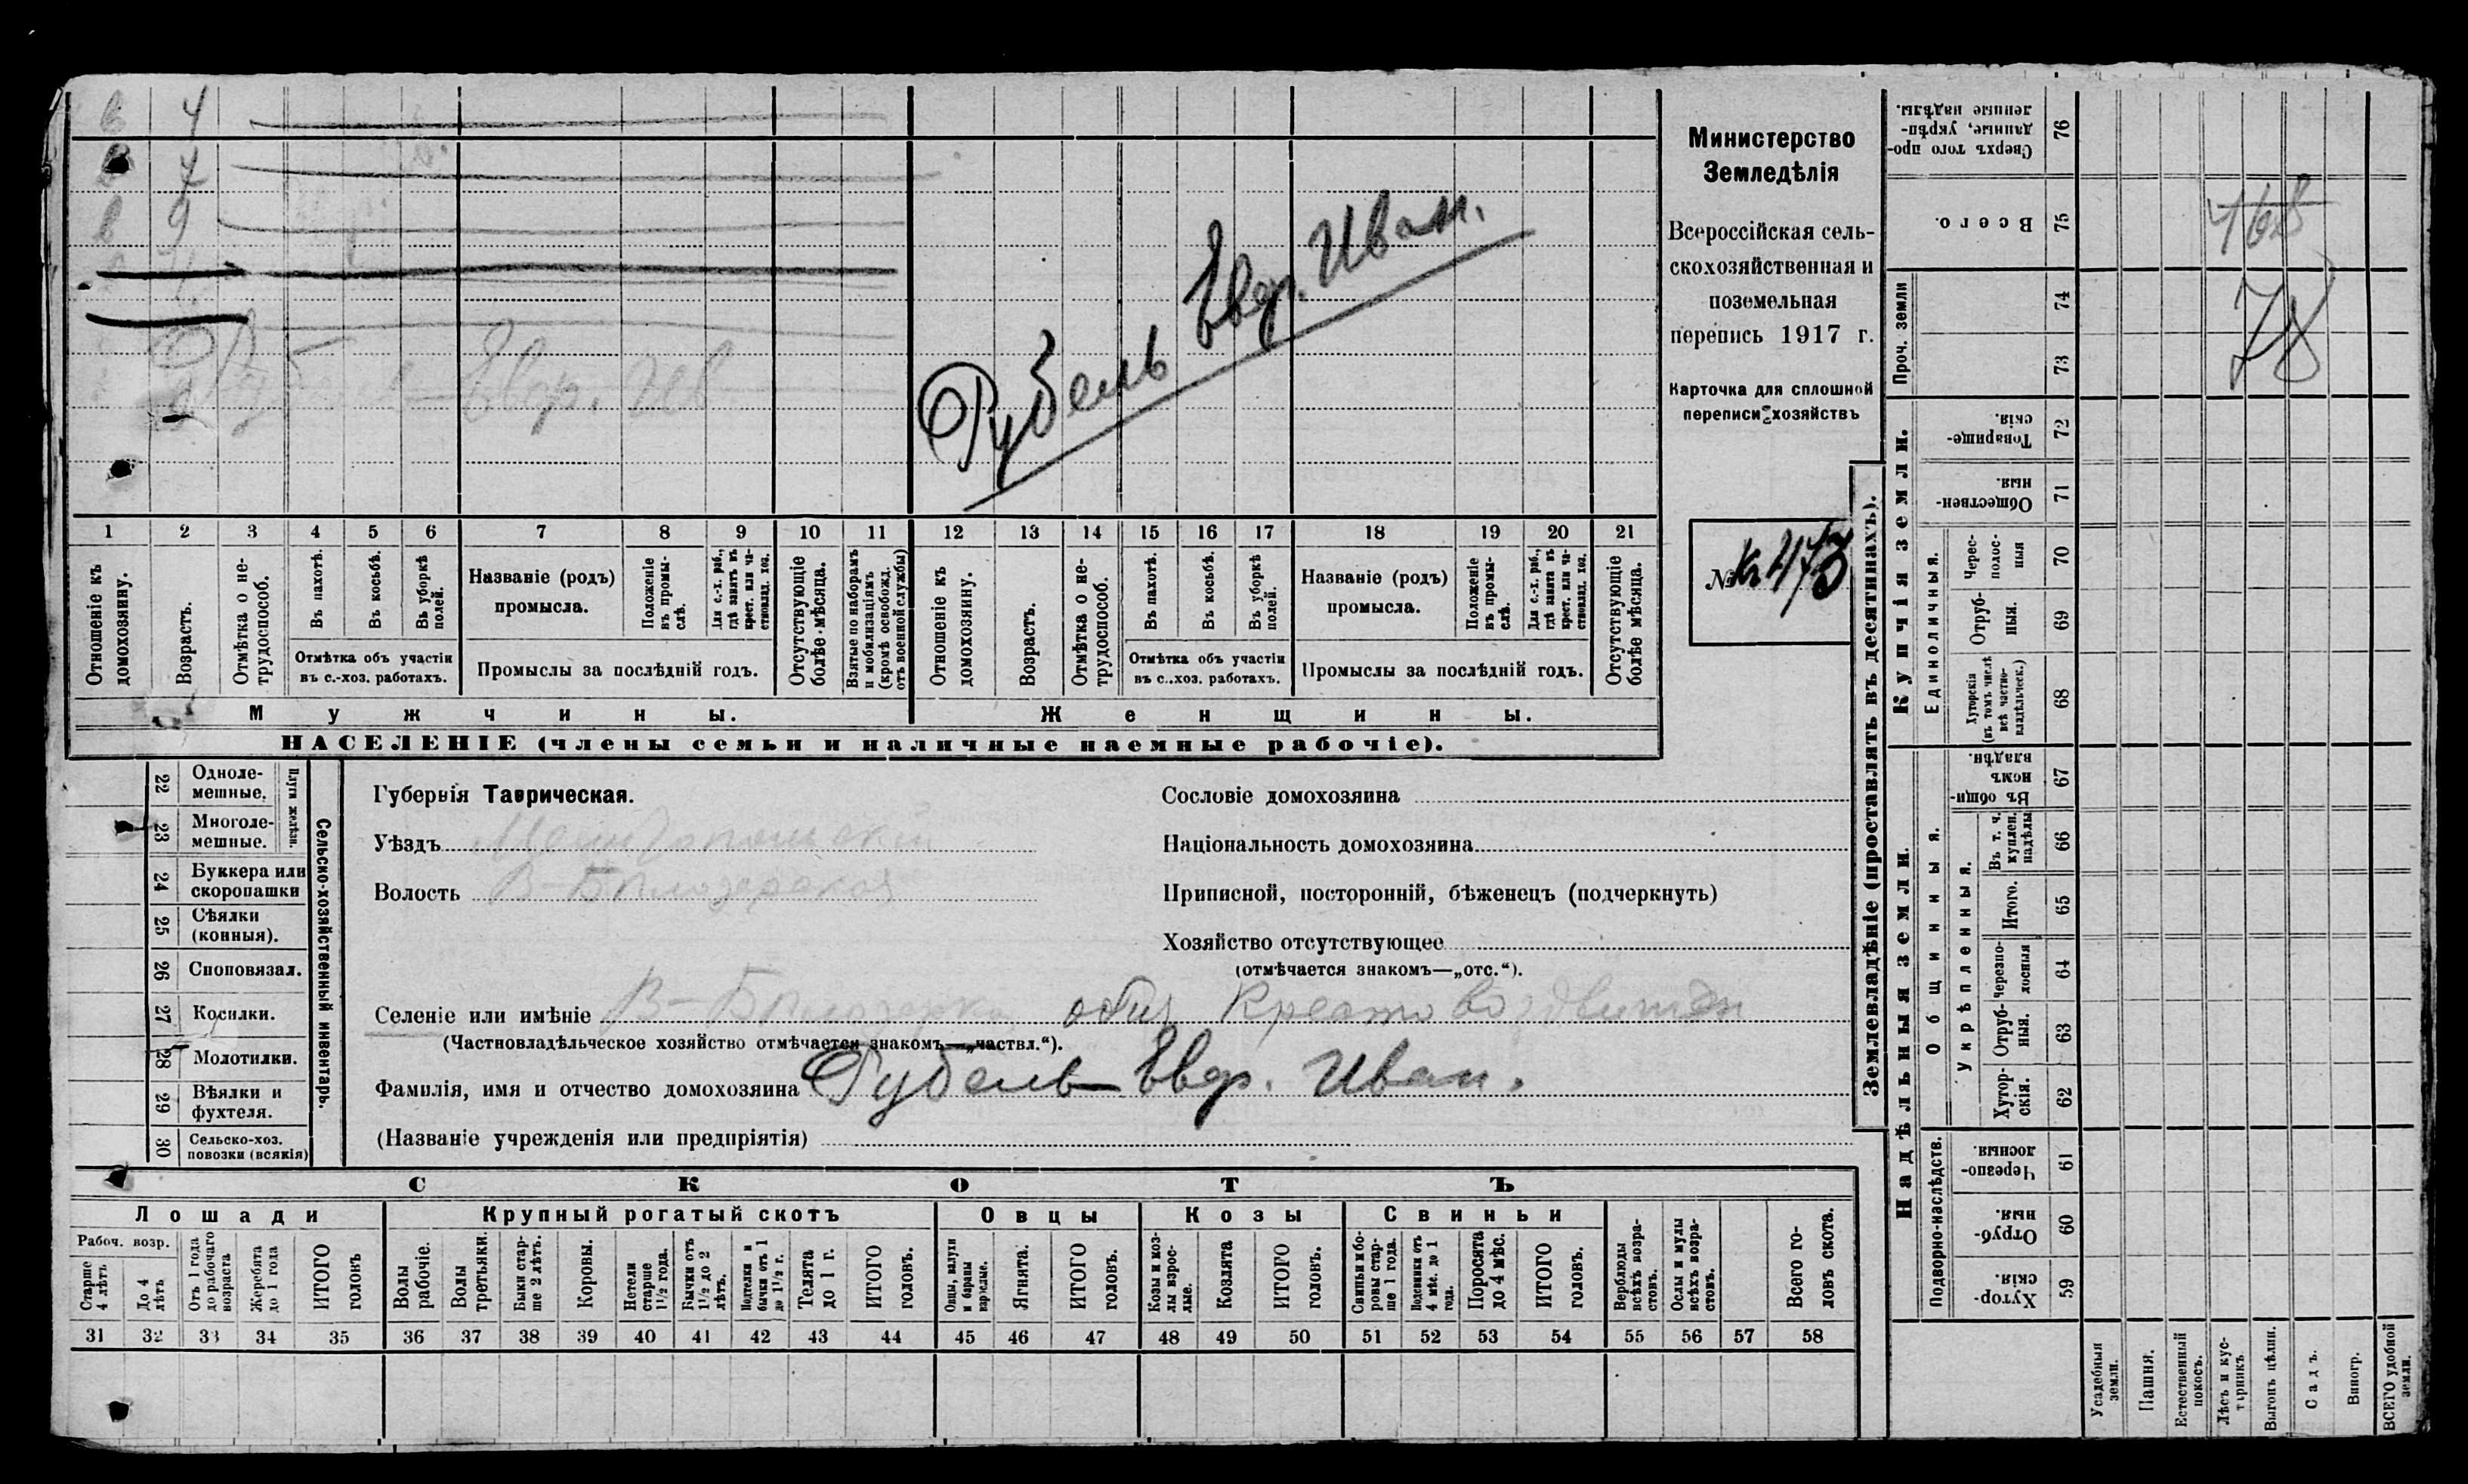 в 4
7
в 9
Рубель Евдр. Иван.
1 2 3 4 5 6 7 8 9 10 11 12 13 14 15 16 17 18 19 20 21
Отношеніе къ домохозяину.
Возрастъ.
Отмѣтка о не-
трудоспособ.
Въ пахотѣ.
Въ косьбѣ.
Въ уборкѣ
полей.
Отмѣтка объ участіи
въ с.-хоз. работахъ.
Названіе (родъ)
промысла.
Положеніе
въ промы-
слѣ.
Для с.-х. раб.,
гдѣ занятъ въ
крест. или ча-
стновлад. хоз.
Промыслы за послѣдній годъ.
Отсутствующіе
болѣе мѣсяца.
Взятые по наборамъ
и мобилизаціямъ
(кромѣ освобожд.
отъ военной службы)
Отношеніе къ
домохозяину.
Возрастъ.
Отмѣтка о не-
трудоспособ.
Въ пахотѣ.
Въ косьбѣ.
Въ уборкѣ
полей.
Отмѣтка объ участіи
въ с..хоз. работахъ.
Названіе (родъ)
промысла.
Положеніе
въ промы-
слѣ.
Для с.-х. раб.,
гдѣ занята въ
крест. или ча-
стновлад. хоз.
Промыслы за послѣдній годъ.
Отсутствующіе
болѣе мѣсяца.
Мужчины.
Женщины.
НАСЕЛЕНІЕ (члены семьи и наличные наемные рабочіе).
Министерство
Земледѣлія
Всероссійская сель-
скохозяйственная и
поземельная
перепись 1917 г.
Карточка для сплошной
переписи хозяйствъ
№ 473
22 Одноле-
мешные.
23 Многоле-
мешные.
Плуги желѣзн.
24 Буккера или
скоропашки
25 Сѣялки
(конныя).
26 Сноповязал.
27 Косилки.
28 Молотилки.
29 Вѣялки и
фухтеля.
30 Сельско-хоз.
повозки (всякія)
Сельско-хозяйственный инвентарь.
Губернія Таврическая.
Уѣздъ Мелитопольскій
Волость В-Бѣлозерская
Селеніе или имѣніе В-Бѣлозерка общ Крестовоздвижен
(Частновладѣльческое хозяйство отмѣчается знакомъ—„частвл.“).
Фамилія, имя и отчество домохозяина Рубель Евдр. Иван.
(Названіе учрежденія или предпріятія)
Сословіе домохозяина
Національность домохозяина
Приписной, посторонній, бѣженецъ (подчеркнуть)
Хозяйство отсутствующее
(отмѣчается знакомъ—„отс.“).
СКОТЪ
Лошади
Крупный рогатый скотъ
Овцы
Козы
Свиньи
Рабоч. возр.
Старше
4 лѣтъ
До 4
лѣтъ
Отъ 1 года
до рабочаго
возраста
Жеребята
до 1 года
ИТОГО
головъ
Волы
рабочіе.
Волы
третьяки.
Быки стар-
ше 2 лѣтъ.
Коровы.
Нетели
старше
1½ года.
Бычки отъ
1½ до 2
лѣтъ.
Подтелки и
бычки отъ 1
до 1½ г.
Телята
до 1 г.
ИТОГО
головъ.
Овцы, валухи
и бараны
взрослые.
Ягнята.
ИТОГО
головъ.
Козы и коз-
лы взрос-
лые.
Козлята
ИТОГО
головъ.
Свиньи и бо-
ровы стар-
ше 1 года.
Подсвинки отъ
4 мѣс. до 1
года.
Поросята
до 4 мѣс.
ИТОГО
головъ.
Верблюды
всѣхъ возра-
стовъ.
Ослы и мулы
всѣхъ возра-
стовъ.
Всего го-
ловъ скота.
31 32 33 34 35 36 37 38 39 40 41 42 43 44 45 46 47 48 49 50 51 52 53 54 55 56 57 58
Землевладѣніе (проставлять въ десятинахъ).
Сверхъ того про-
данные, укрѣп-
ленные надѣлы.
76
Всего.
75
Проч. земли
74
73
Купчія земли.
Товарище-
скія.
72
Обществен-
ныя.
71
Единоличныя.
Черес-
полос-
ныя
70
Отруб-
ныя.
69
Хуторскія
(въ томъ числѣ
всѣ частно-
владѣльческ.)
68
Надѣльныя земли.
Общинныя.
Въ общи-
номъ
владѣн.
67
Укрѣпленныя.
Въ т. ч.
куплен.
надѣлы
66
Итого.
65
Черезпо-
лосныя
64
Отруб-
ныя.
63
Хутор-
скія.
62
Подворно-наслѣдств.
Черезпо-
лосныя.
61
Отруб-
ныя.
60
Хутор-
скія.
59
Усадебныя
земли.
Пашня.
Естественный
покосъ.
Лѣсъ и кус-
тарникъ.
Выгонъ цѣлин.
Садъ.
Виногр.
ВСЕГО удобной
земли.
78